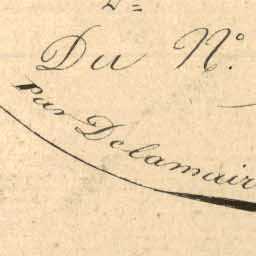 Du N°.
par Delamair